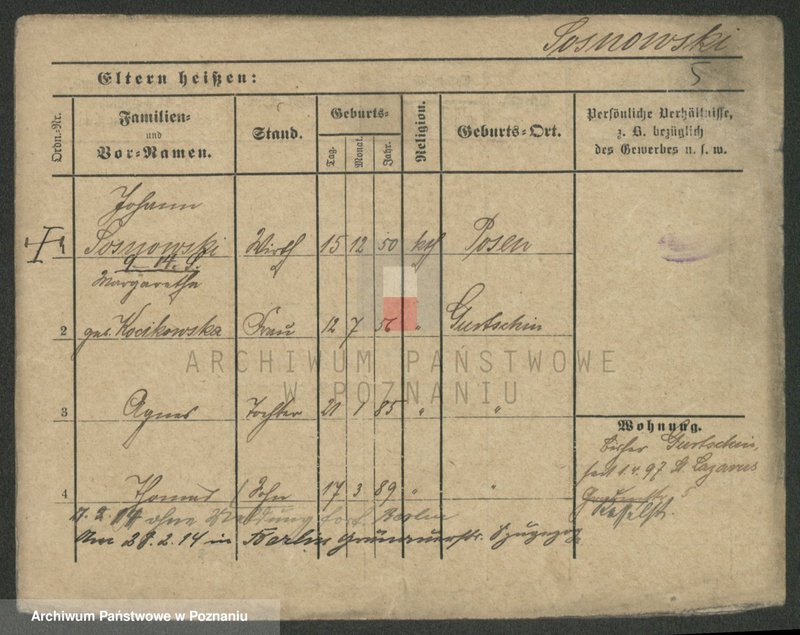 Sosnowski
5
Eltern heißen:
Ordn.-Nr.
Familien-
und
Vor-Namen.
Stand.
Geburts-
Tag.
Monat.
Jahr.
Religion.
Geburts-Ort.
Persönliche Verhältnisse,
z. B. bezüglich
des Gewerbes u. s. w.
Johann
Sosnowski Wirth 15 12 50 kth Posen
Margaretha
2 geb. Kocikowska Frau 12 7 56 " Gurtschin
ARCHIWUM PAŃSTWOWE
W POZNANIU
3 Agnes Tochter 21 1 85 " "
Wohnung.
bisher Gurtschin,
seit 1.4.97 St. Lazarus
4 Thomas Sohn 17 3 89 " "
7.2.14 ohne Meldung fort Berlin
Am 28.2.14 in Berlin
Archiwum Państwowe w Poznaniu